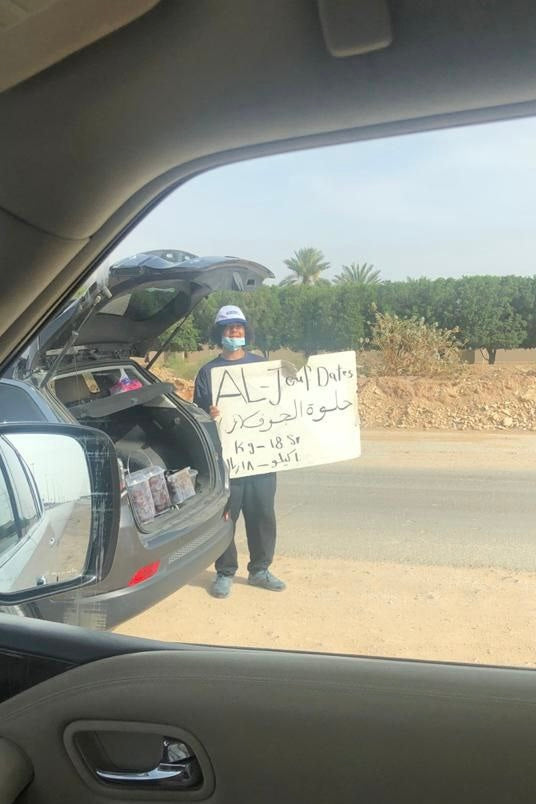 AL-Jouf Dates
حلوة الجوف
Kg - 18 Sr
١ كيلو - ١٨